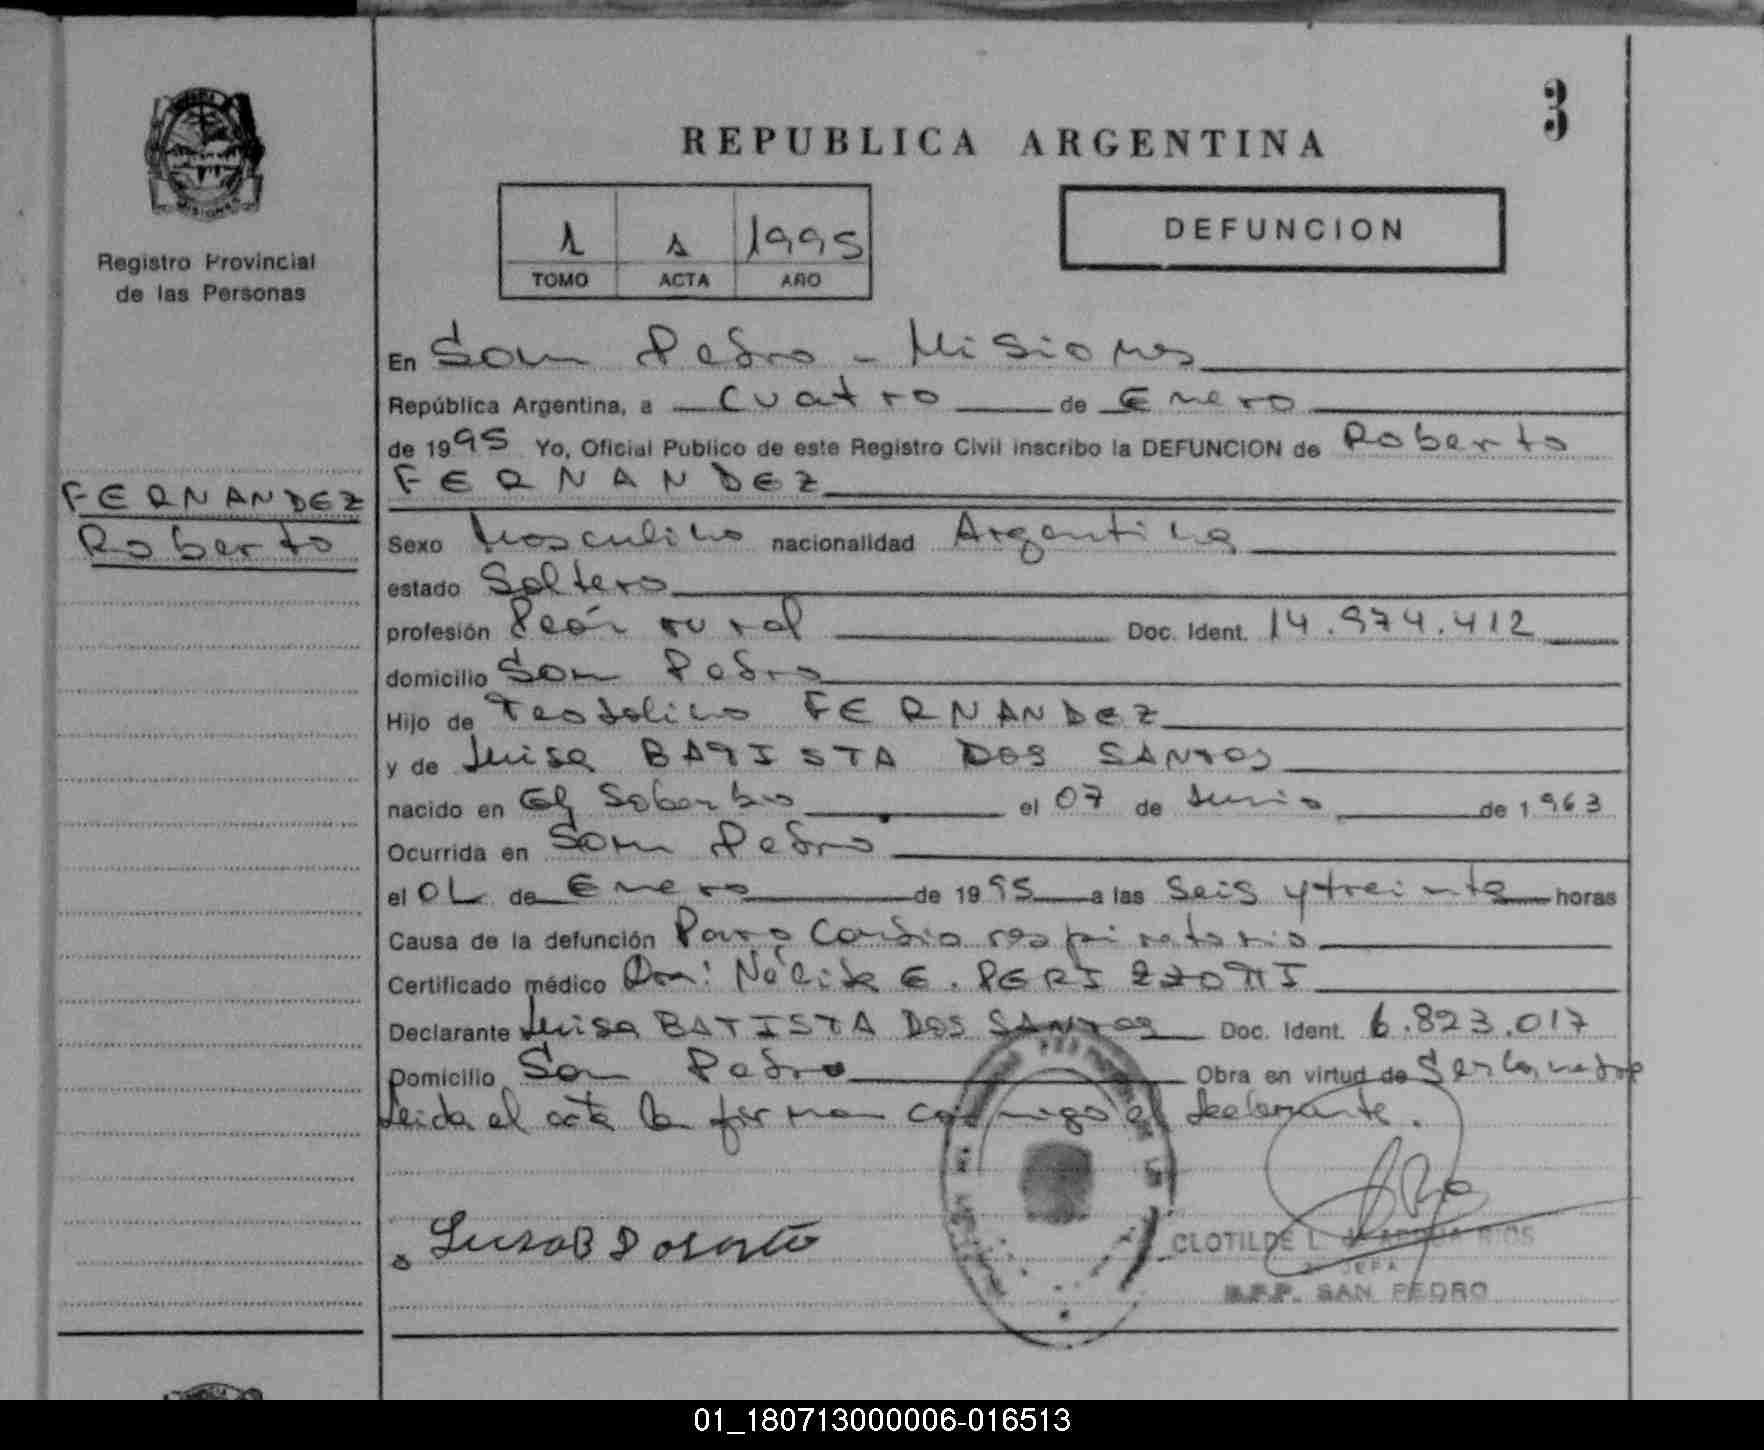 REPUBLICA ARGENTINA
3
MISIONES
Registro Provincial
de las Personas
1 1 1995
TOMO ACTA AÑO
DEFUNCION
En San Pedro - Misiones
República Argentina, a cuatro de Enero
de 1995 Yo, Oficial Publico de este Registro Civil inscribo la DEFUNCION de Roberto
FERNANDEZ
FERNANDEZ
Roberto
Sexo Masculino nacionalidad Argentina
estado Soltero
profesión Peón rural Doc. Ident. 14.974.412
domicilio San Pedro
Hijo de Teodolino FERNANDEZ
y de Luisa BATISTA DOS SANTOS
nacido en El Soberbio el 07 de Junio de 1963
Ocurrida en San Pedro
el 01 de Enero de 1995 a las Seis y treinta horas
Causa de la defunción Paro Cardio respiratorio
Certificado médico Dra: Nélida E. PERIZZOTTI
Declarante Luisa BATISTA DOS SANTOS Doc. Ident. 6.823.017
Domicilio San Pedro Obra en virtud de Ser la madre
Leida el acta la firman conmigo el declarante.
CLOTILDE L. RIOS
JEFA
R.P.P. SAN PEDRO
01_180713000006-016513